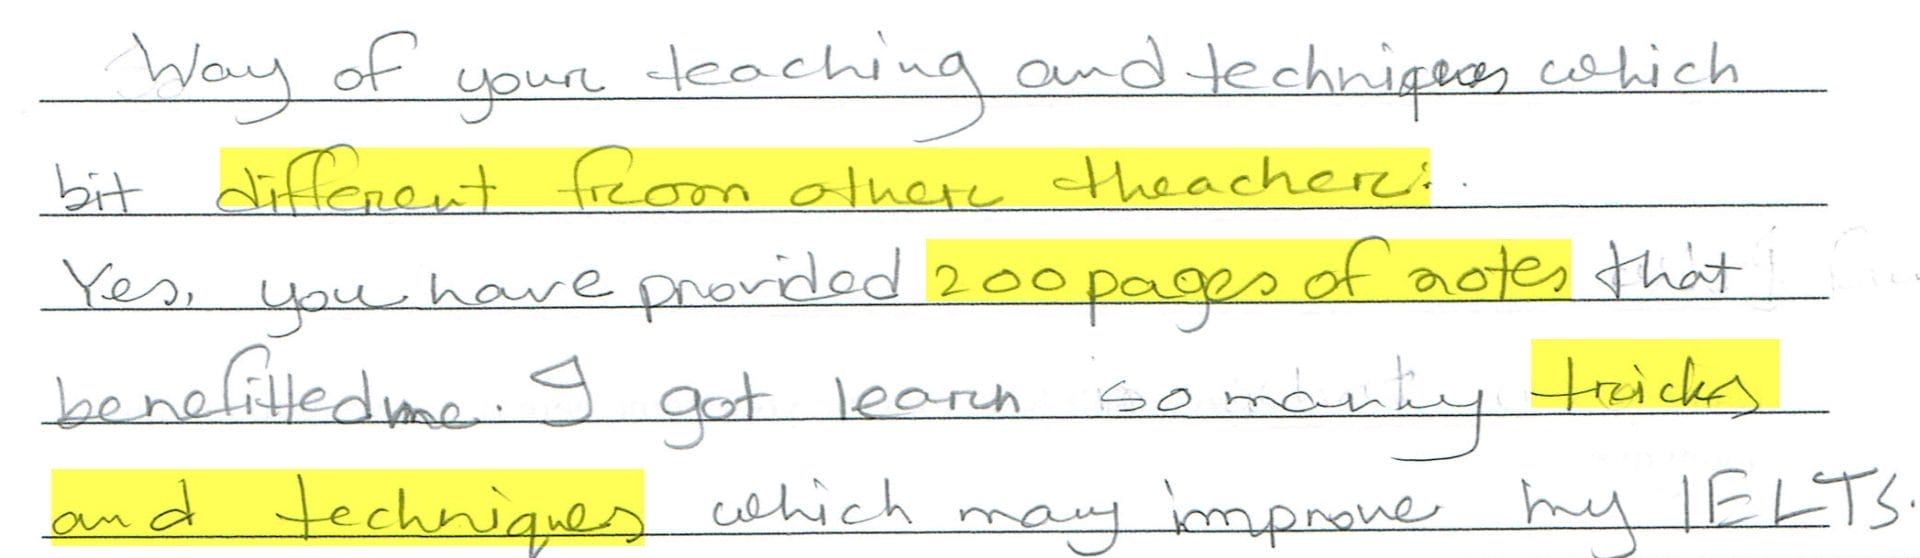 Way of your teaching and techniques which
bit different from other theacher.
Yes, you have provided 200 pages of notes that
benefittedme. I got learn so many tricks
and techniques which may improve my IELTS.